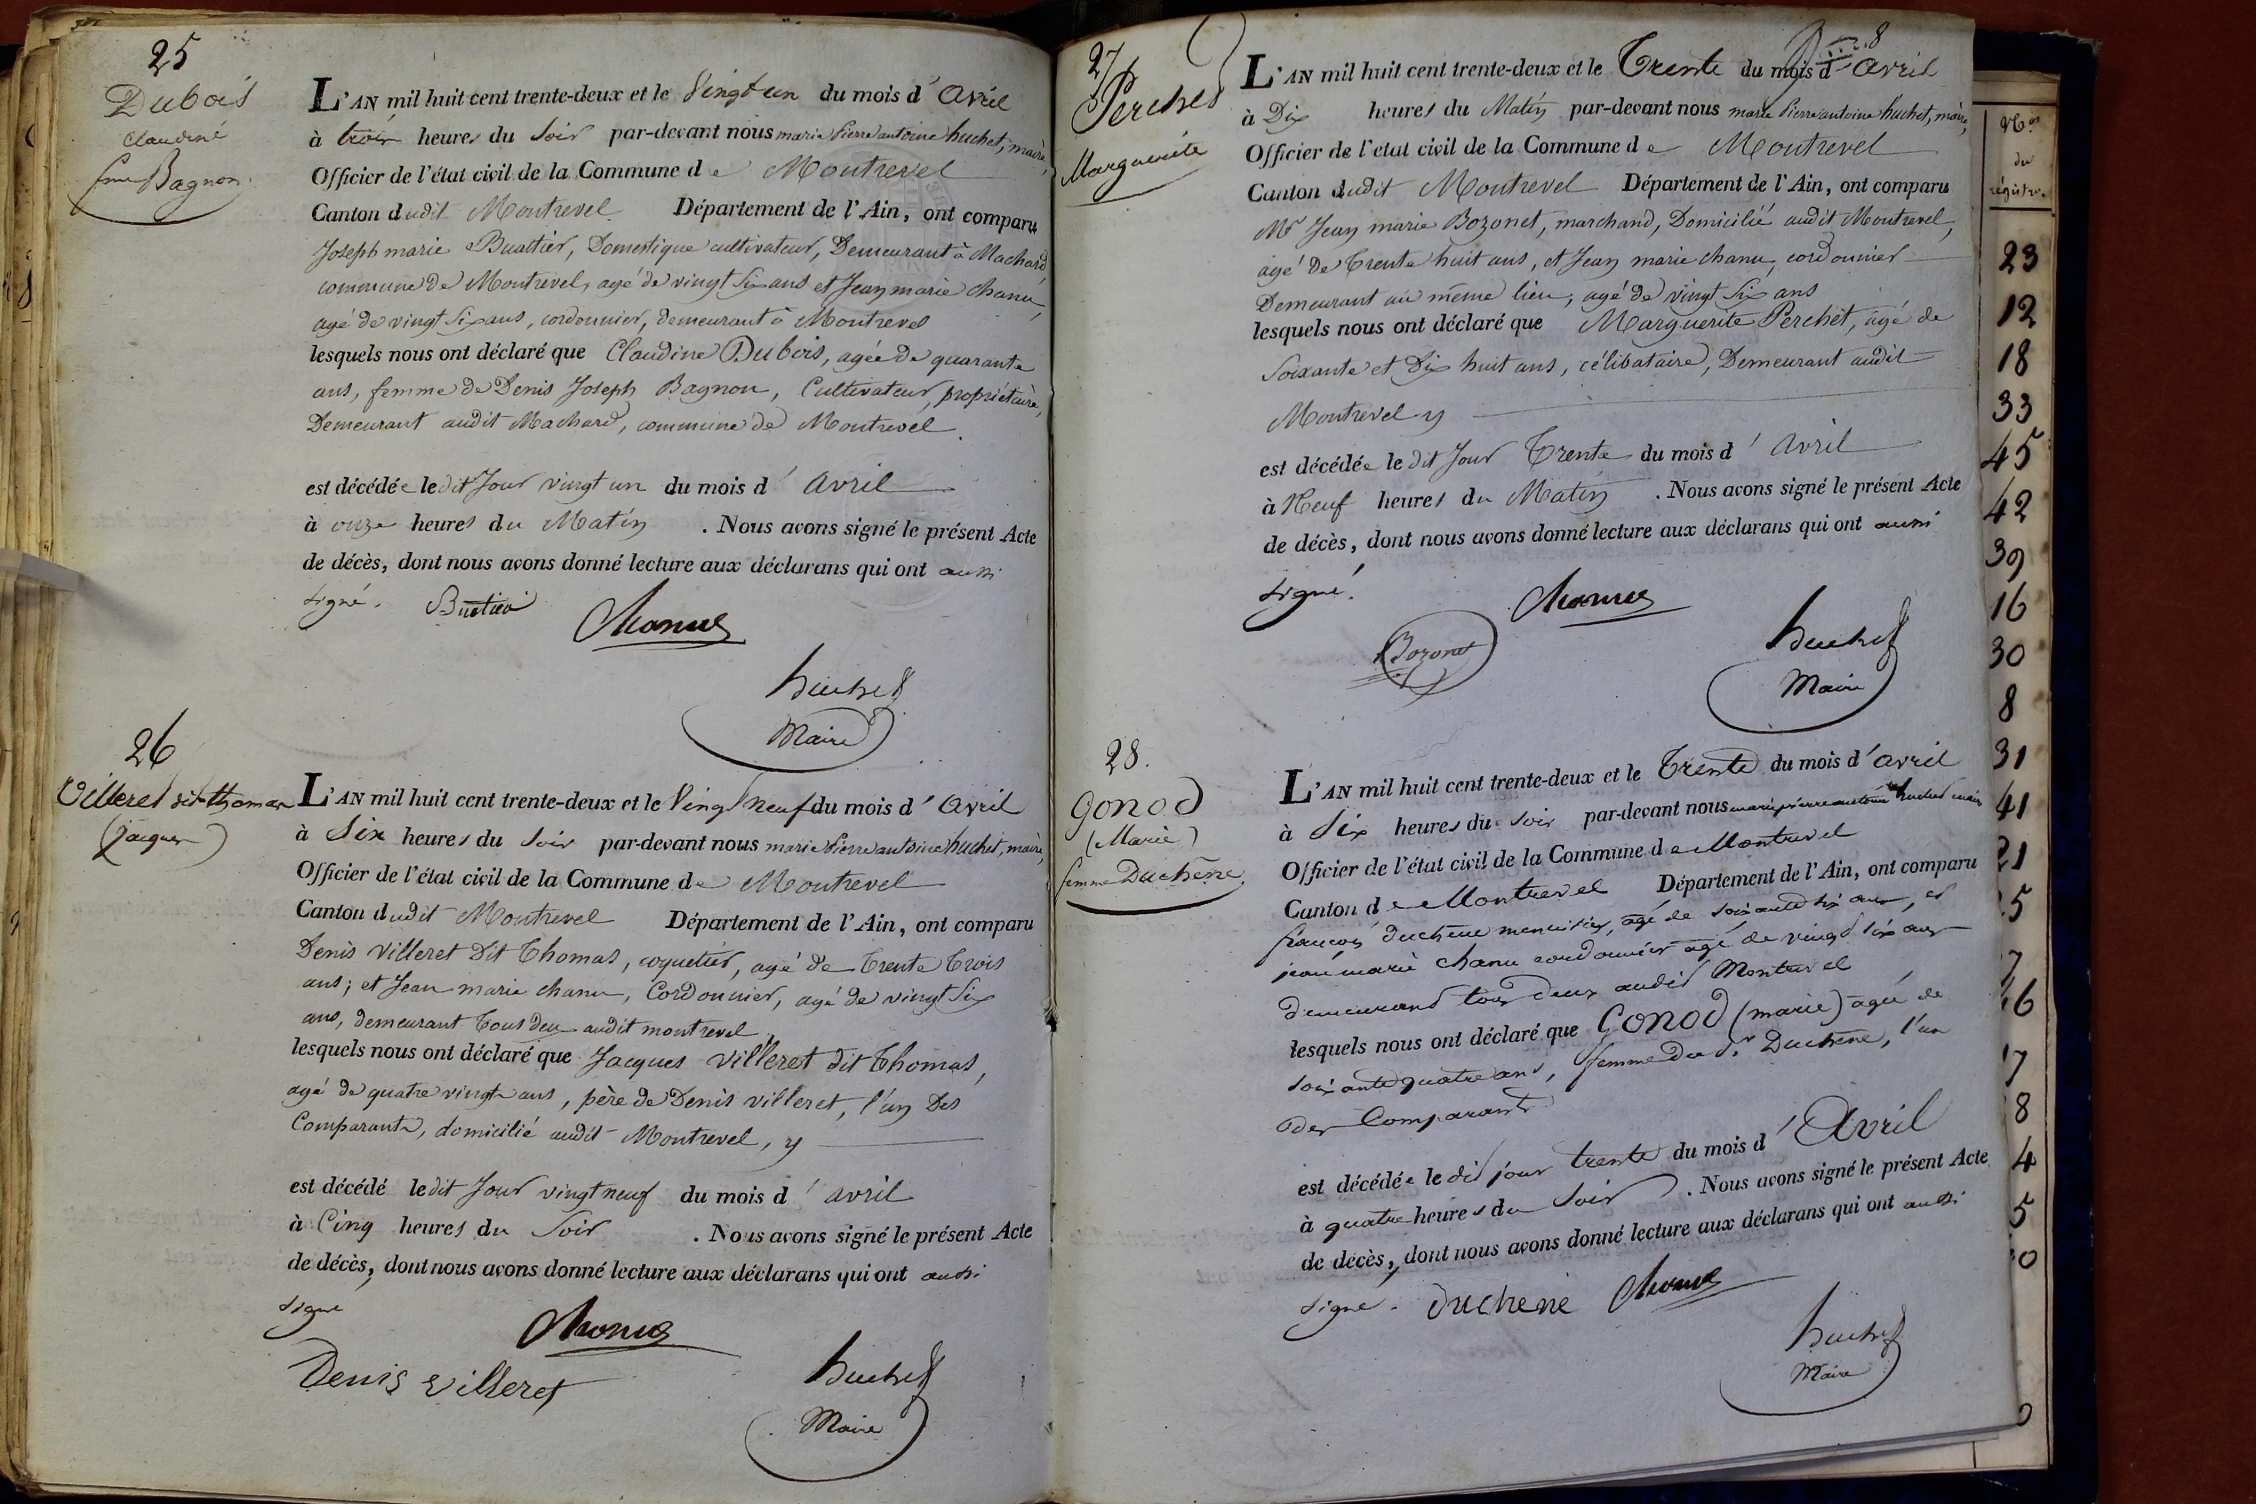 25
Dubois
claudine
fme Bagnon.
L'AN mil huit cent trente-deux et le vingt un du mois d' avril
à trois heures du soir par-devant nous marie pierre antoine huchet, maire,
Officier de l'état civil de la Commune de Montrevel
Canton dudit Montrevel Département de l'Ain, ont comparu
Joseph marie Buattier, Domestique cultivateur, Demeurant à Machard
commune de Montrevel, agé de vingt six ans et Jean marie chanu,
agé de vingt six ans, cordonnier, demeurant à Montrevel
lesquels nous ont déclaré que Claudine Dubois, agée de quarante
ans, femme de Denis Joseph Bagnon, Cultivateur, propriétaire,
Demeurant audit Machard, commune de Montrevel.
est décédée ledit Jour vingt un du mois d' avril
à onze heures du Matin . Nous avons signé le présent Acte
de décès, dont nous avons donné lecture aux déclarans qui ont aussi
signé. Buatier
Chanu
huchet
Maire
26
Villeret dit thomas
(Jacques)
L'AN mil huit cent trente-deux et le Vingt neuf du mois d' avril
à Six heures du soir par-devant nous marie pierre antoine huchet, maire,
Officier de l'état civil de la Commune de Montrevel
Canton dudit Montrevel Département de l'Ain, ont comparu
Denis Villeret Dit Thomas, coquetier, agé de Trente Trois
ans; et Jean marie chanu, Cordonnier, agé de vingt Six
ans, demeurant Tous deux audit montrevel
lesquels nous ont déclaré que Jacques Villeret dit Thomas,
agé de quatre vingt ans, père de Denis villeret, l'un Des
Comparants, domicilié audit Montrevel,
est décédé ledit Jour vingt neuf du mois d' avril
à Cinq heures du Soir . Nous avons signé le présent Acte
de décès, dont nous avons donné lecture aux déclarans qui ont aussi
signé
Chanu
Denis villeret
huchet
Maire
27
Perchet
Marguerite
8
L'AN mil huit cent trente-deux et le Trente du mois d' avril
à Dix heures du Matin par-devant nous marie pierre antoine huchet, maire,
Officier de l'état civil de la Commune de Montrevel
Canton dudit Montrevel Département de l'Ain, ont comparu
Mr Jean marie Bozonet, marchand, Domicilié audit Montrevel,
agé de Trente huit ans, et Jean marie chanu, cordonnier
Demeurant au même lieu, agé de vingt Six ans
lesquels nous ont déclaré que Marguerite Perchet, agé de
Soixante et Dix huit ans, célibataire, Demeurant audit
Montrevel
est décédée ledit Jour Trente du mois d' avril
à Neuf heures du Matin . Nous avons signé le présent Acte
de décès, dont nous avons donné lecture aux déclarans qui ont aussi
signé.
Chanu
Bozonet
huchet
Maire
28.
Gonod
(Marie)
femme Duchêne.
L'AN mil huit cent trente-deux et le Trente du mois d' avril
à Six heures du soir par-devant nous marie pierre antoine huchet maire
Officier de l'état civil de la Commune de Montrevel
Canton de Montrevel Département de l'Ain, ont comparu
françois duchêne menuisier, agé de soixante six ans, et
jean marie chanu cordonnier agé de vingt six ans
demeurant tous deux audit Montrevel
lesquels nous ont déclaré que Gonod (marie) agée de
soixante quatre ans, femme du Sr Duchêne, l'un
des Comparants
est décédée le dit jour trente du mois d' Avril
à quatre heures du Soir . Nous avons signé le présent Acte
de décès, dont nous avons donné lecture aux déclarans qui ont aussi
signé. duchene
Chanu
huchet
Maire
Nos
du
régistre.
23
12
18
33
45
42
39
16
30
8
31
41
21
5
7
6
7
8
4
5
0